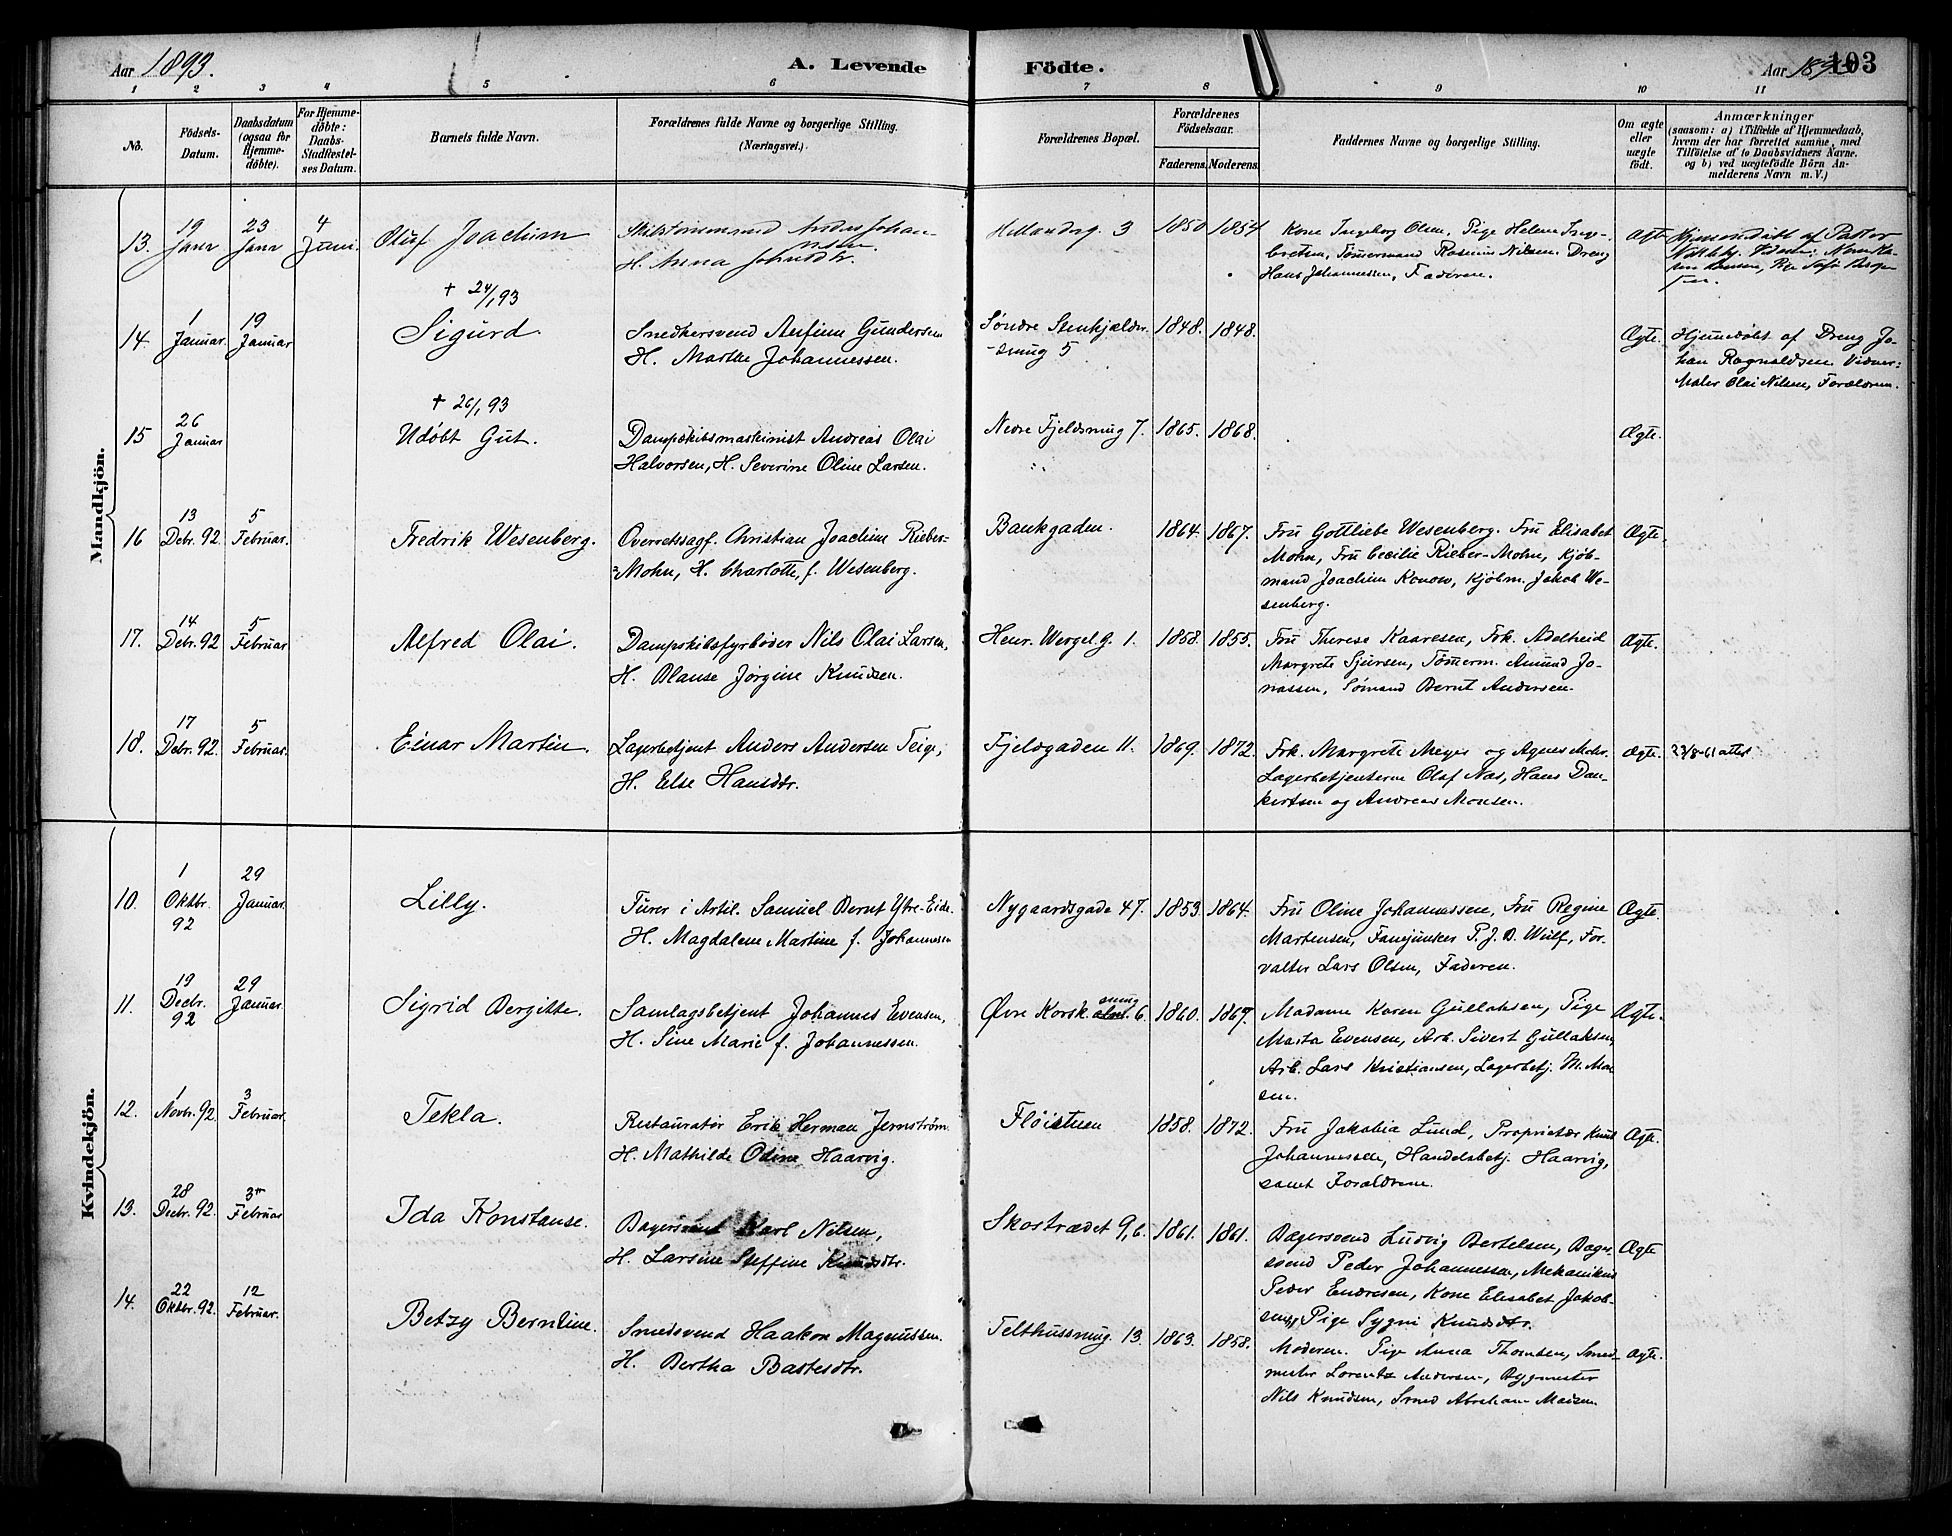 Aar 1893.
A. Levende Födte.
Aar 1893
103
1 2 3 4 5 6 7 8 9 10 11
No.
Födsels-Datum.
Daabsdatum (ogsaa for Hjemmedöbte).
For Hjemmedöbte: Daabs-Stadfæstelses Datum.
Barnets fulde Navn.
Forældrenes fulde Navne og borgerlige Stilling. (Næringsvei.)
Forældrenes Bopæl.
Forældrenes Födselsaar.
Faderens. Moderens.
Faddernes Navne og borgerlige Stilling.
Om ægte eller uægte født.
Anmærkninger
(saasom: a) i Tilfælde af Hjemmedaab,
hvem der har forrettet samme, med
Tilföielse af to Daabsvidners Navne.
og b) ved uægtefödte Börn Anmelderens Navn m.V.)
Mandkjön.
13. 19 Janr 23 Janr 4 Juni
Oluf Joachim
Skibstømmermand Anders Johannesen
H. Anna Johnsdtr.
Hollanderg. 3 1850 1854
Kone Ingeborg Olsen, Pige Helene Ingebretsen, Tømermand Rasmus Nilsen. Dreng
Hans Johannessen, Faderen.
Ægte
Hjemmedøbt af Pastor
+ 24/1 93
14. 1 Januar. 19 Januar
Sigurd.
Snedkersvend Anfinn Gundersen
H. Marthe Johannessen.
Søndre Stenkjælder-
-smug 5 1848. 1848.
Ægte.
Hjemdøbt af Dreng Jo-
han Ragnaldsen Vidner:
Maler Olai Nilsen, Forældrene.
+ 26/1 93
15 26 Januar
Udøbt Gut.
Dampskibsmaskinist Andreas Olai
Halvorsen, H. Severine Oline Larsen.
Nedre Fjeldsmug 7. 1865. 1868.
Ægte.
16 13 Debr. 92. 5 Februar.
Fredrik Wesenberg.
Overretssagf. Christian Joachim Rieber-
=Mohn, H. Charlotte, f. Wesenberg.
Bankgaden. 1864. 1867.
Fru Gottliebe Wesenberg. Fru Elisabet
Mohn, Fru Cecilie Rieber-Mohn, Kjøb-
mand Joachim Konow, Kjøbm. Jakob We-
senberg.
Ægte.
17. 14 Debr. 92 5 Februar.
Alfred Olai.
Dampskibsfyrbøder Nils Olai Larsen,
H. Blanse Jørgine Knudsen.
Henr. Wergel. G. 1. 1858. 1855.
Fru Therese Kaaresen, Frk. Adelheid
Margrete Sjursen, Tømerm. Amund Jo-
nassen, Sømand Bernt Andersen.
Ægte.
18. 17 Debr. 92. 5 Februar.
Einar Martin.
Lagerbetjent Anders Andersen Teige,
H. Else Hansdtr.
Fjeldgaden 11. 1869. 1872.
Frk. Margrete Meyer og Agnes Mohr.
Lagerbetjenterne Olaf Næs, Hans Dan-
kertsen og Andreas Monsen.
Ægte.
23/8-61 attest
Kvindekjön.
10. 1 Oktbr. 92 29 Januar.
Lilly.
Furer i Artil. Samuel Bernt Ytre-Eide.
H. Magdalene Martine f. Johannesen
Nygaardsgade 47. 1853. 1864.
Fru Oline Johannessen, Fru Regine
Martensen, Fanejunker P. J. B. Wulf, For-
valter Lars Olsen, Faderen.
Ægte.
11. 19 Decbr. 92 29 Januar.
Sigrid Bergitte.
Samlagsbetjent Johannes Evensen,
H. Sine Marie f. Johannessen.
Øvre Korsk. smug 6. 1860. 1867.
Madame Karen Gullaksen, Pige
Marta Evensen, Arb. Sivert Gullaksen
Arb. Lars Kristiansen, Lagerbetj. M. Mon-
sen.
Ægte.
12. 1 Novbr. 92. 3 Februar.
Tekla.
Restauratør Erik Herman Jernstrøm.
H. Mathilde Odine Haarvig.
Fløistuen 1858. 1872.
Fru Jakobia Lund, Proprietær Knut
Johannessen, Handelsbetj. Haarvig,
samt Forældrene.
Ægte.
13. 28 Decbr. 92. 3 Februar
Ida Konstanse.
Bagersvend Karl Nilsen,
H. Larsine Steffine Knudsdtr.
Skostrædet 9, 6. 1861. 1861.
Bagersvend Ludvig Bertelsen, Bager-
svend Peder Johannessen, Mekanikus
Peder Endresen, Kone Elisabet Jakob-
sen, Pige Sygni Knudsdtr.
Ægte
14. 22 Oktbr. 92. 12 Februar.
Betzy Berntine.
Smedsvend Haakon Magnussen.
H. Bertha Bastesdtr.
Telthussmug. 13. 1863. 1858.
Moderen. Pige Anna Thomsen, Smed-
mester Lorentz Andersen, Bygmester
Nils Knudsen, Smed Abraham Madsen
Ægte.